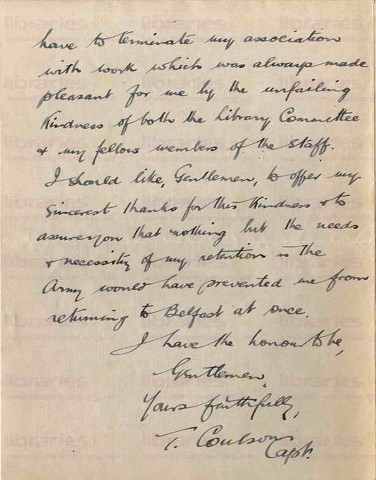 have to terminate my association
with work which was always made
pleasant for me by the unfailing
Kindness of both the Library Committee
& my fellow members of the staff.
I should like, Gentlemen, to offer my
sincerest thanks for this Kindness & to
assure you that nothing but the needs
& necessity of my retention in the
Army would have prevented me from
returning to Belfast at once.
I have the honour to be,
Gentlemen,
Yours faithfully,
T. Coulson
Capt.